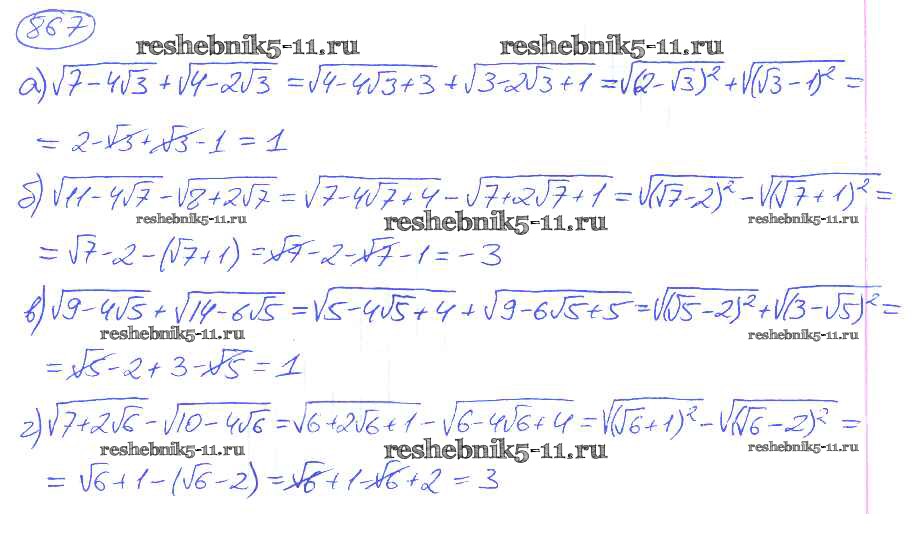 867
reshebnik5-11.ru reshebnik5-11.ru
а) √(7-4√3) + √(4-2√3) = √(4-4√3+3) + √(3-2√3+1) = √((2-√3)²) + √((√3-1)²) =
= 2-√3+√3-1 = 1
б) √(11-4√7) - √(8+2√7) = √(7-4√7+4) - √(7+2√7+1) = √((√7-2)²) - √((√7+1)²) =
reshebnik5-11.ru reshebnik5-11.ru reshebnik5-11.ru
= √7-2-(√7+1) = √7-2-√7-1 = -3
в) √(9-4√5) + √(14-6√5) = √(5-4√5+4) + √(9-6√5+5) = √((√5-2)²) + √((3-√5)²) =
reshebnik5-11.ru reshebnik5-11.ru
= √5-2+3-√5 = 1
г) √(7+2√6) - √(10-4√6) = √(6+2√6+1) - √(6-4√6+4) = √((√6+1)²) - √((√6-2)²) =
reshebnik5-11.ru reshebnik5-11.ru reshebnik5-11.ru
= √6+1-(√6-2) = √6+1-√6+2 = 3